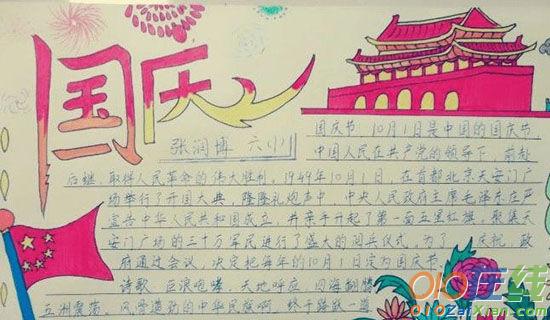 国庆
张润博 六(1)
国庆节，10月1日是中国的国庆节，
中国人民在共产党的领导下，前赴
后继，取得人民革命的伟大胜利，1949年10月1日，在首都北京天安门广
场举行了开国大典，隆隆礼炮声中，中央人民政府主席毛泽东庄严
宣告中华人民共和国成立，并亲手升起了第一面五星红旗，聚集天
安门广场的三十万军民进行了盛大的阅兵仪式，为了 庆祝，政
府通过会议，决定把每年的10月1日定为国庆节。
诗歌 巨浪咆哮，天地呼应 四海翻腾
五洲震荡，风雷激励的中华民族啊 终于
在线
ZaiXian.com